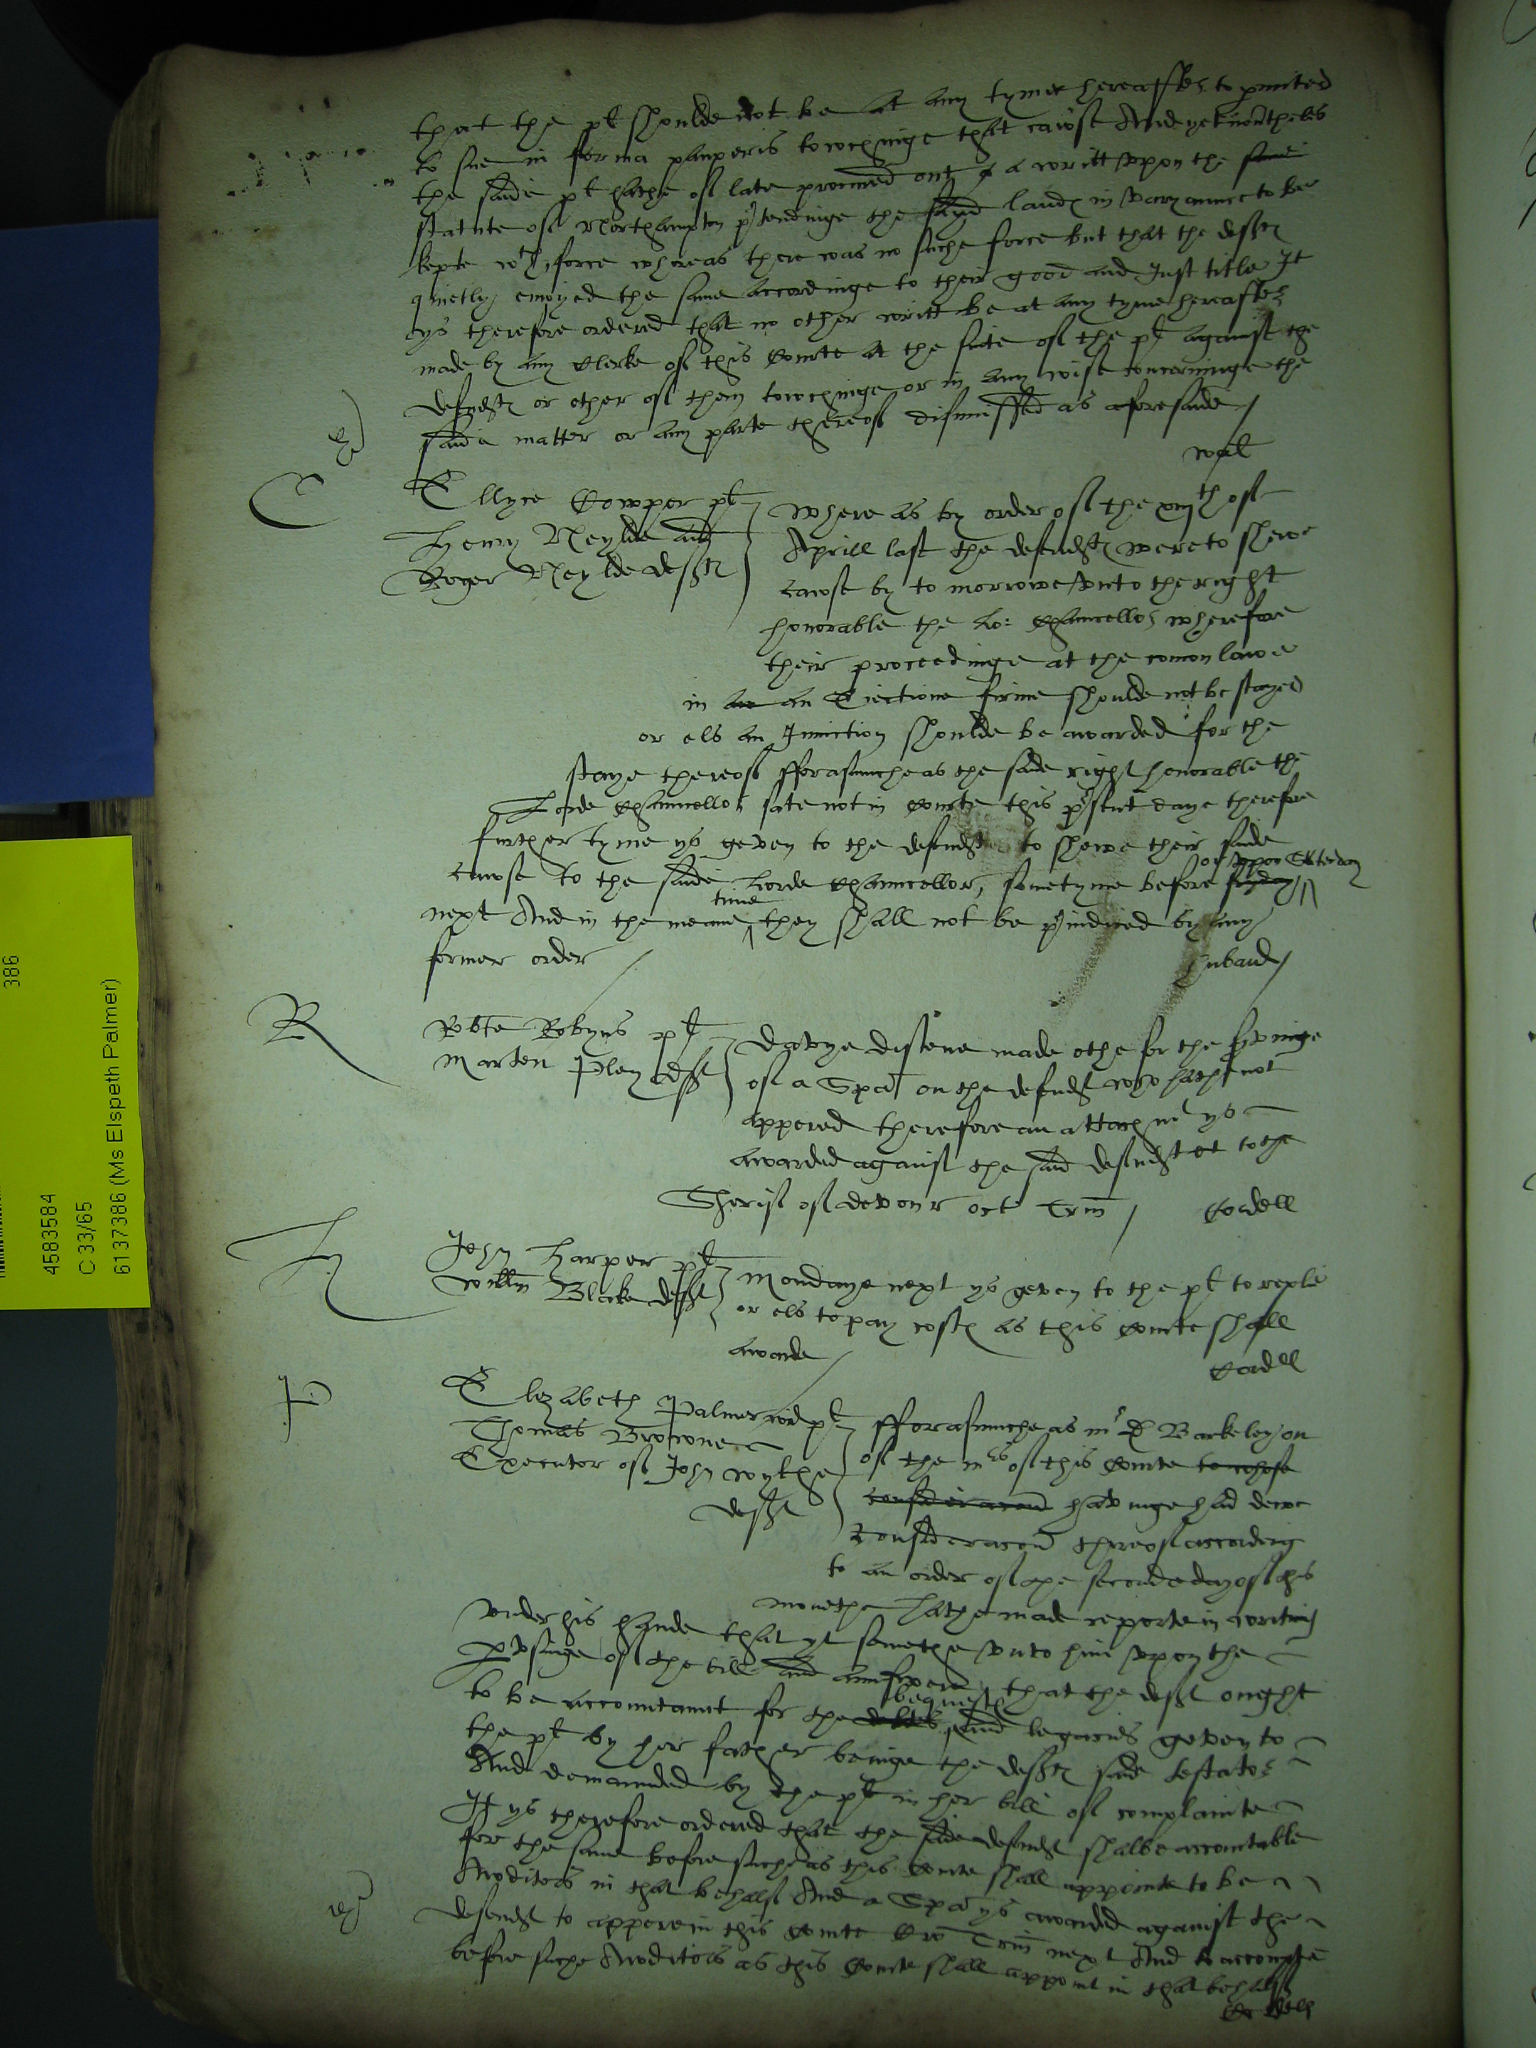 that the pl shoulde not be at any tyme hereafter to pmitted
to sue in forma pauperis towchinge that cawse And yet nonthelesse
the saide pl hathe of late procured out of a writt vpon the same
statute of Northampton ptendinge the sayd landes in varyaunce to be
kepte wth force whereas there was no suche force but that the defftes
quietly enioyed the same accordinge to their good and Just title It
ys therefore ordered that no other writt be at any tyme hereafter
made by any Clerke of this Courte at the sute of the pl against the
defendtes or other of them towchinge or in any wise concerninge the
saide matter or any parte thereof dismissed as aforesaide
Ellyce Cowper pl
Henry Neylde and
Roger Neylde defftes
Where as by order of the xvijth of
Aprill last the defendtes were to shewe
cawse by to morrowe vnto the right
honorable the Lo: Chauncellor wherefore
their proceedinge at the comon lawe
in an Eiectione firme shoulde not be stayed
or els an Iniunction shoulde be awarded for the
staye thereof fforasmuche as the saide right honorable the
Lorde Chauncellor sate not in Courte this psent daye therefore
further tyme ys geven to the defendtes to shewe their saide
or vpon Saterday
cawse to the saide Lorde Chauncellor, sometyme before fryday
time
next And in the meane they shall not be piudiced by any
former order
C
R
Robte Robyns pl
Marten Pley defft
Davye made othe for the servinge
of a Spa on the defendt who hathe not
appered therefore an attachmt ys
awarded against the said defendt et to the
Sherif of devon r oct Trin
Cordell
H
John Harper pl
Willm Blake defft
Mondaye next ys geven to the pl to replie
or els to pay costes as this Courte shall
awarde
Cordell
P
Elizabeth Palmer wid pl
Thomas Browne
Executor of John Wythe
defft
fforasmuche as mr D Barkeley on
of the mrs of this Courte to whose
consideracon havinge had dewe
consideracon thereof according
to an order of the seconde day of this
monethe hathe made reporte in writing
vnder his hande that yt semethe vnto him vpon the
pvsinge of the bill and answere that the defft ought
bequests
to be accountaunt for the debtes and legacies geven to
the pl by her father beinge the defftes saide testator
And demaunded by the pl in her bill of complainte
It ys therefore ordered that the saide defendt shalbe accountable
for the same before suche as this Courte shall appointe to be
Awditors in that behalf And a Spa ys awarded against the
defendt to appere in this Courte Cro Trin next And to accompte
before suche Awditors as this Courte shall appoint in that behalf
Cordell
386
4583584
C 33/65
6137386 (Ms Elspeth Palmer)